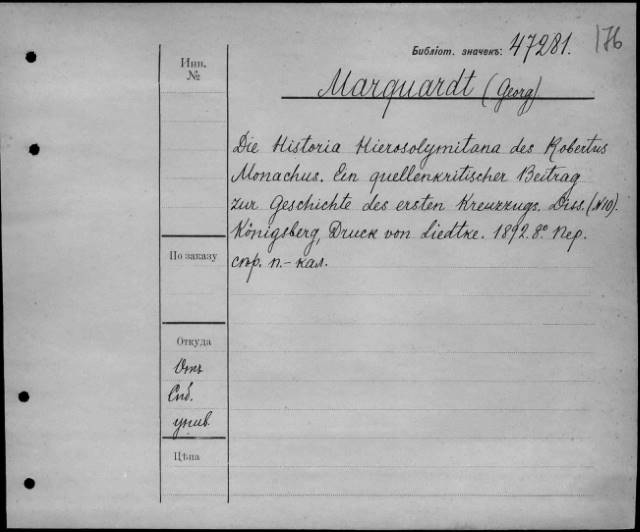 Библіот. значекъ: 47281. 176
Инв.
№
Marquardt (Georg)
Die Historia Hierosolymitana des Robertus
Monachus. Ein quellenkritischer Beitrag
zur Geschichte des ersten Kreuzzugs. Diss. (№10).
Königsberg, Druck von Liedtke. 1892. 8º. Пер.
стр. п.-кал.
По заказу
Откуда
Отъ
Спб.
унив.
Цѣна